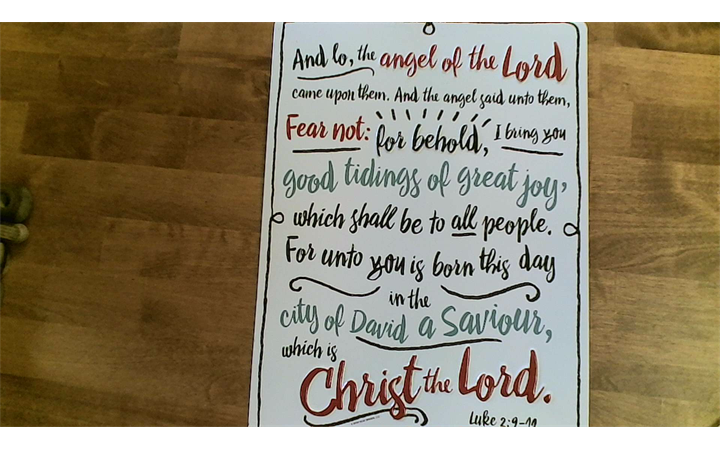 And lo, the angel of the Lord
came upon them. And the angel said unto them,
Fear not: for behold, I bring you
good tidings of great joy,
which shall be to all people.
For unto you is born this day
in the
city of David a Saviour,
which is
Christ the Lord.
Luke 2:9-